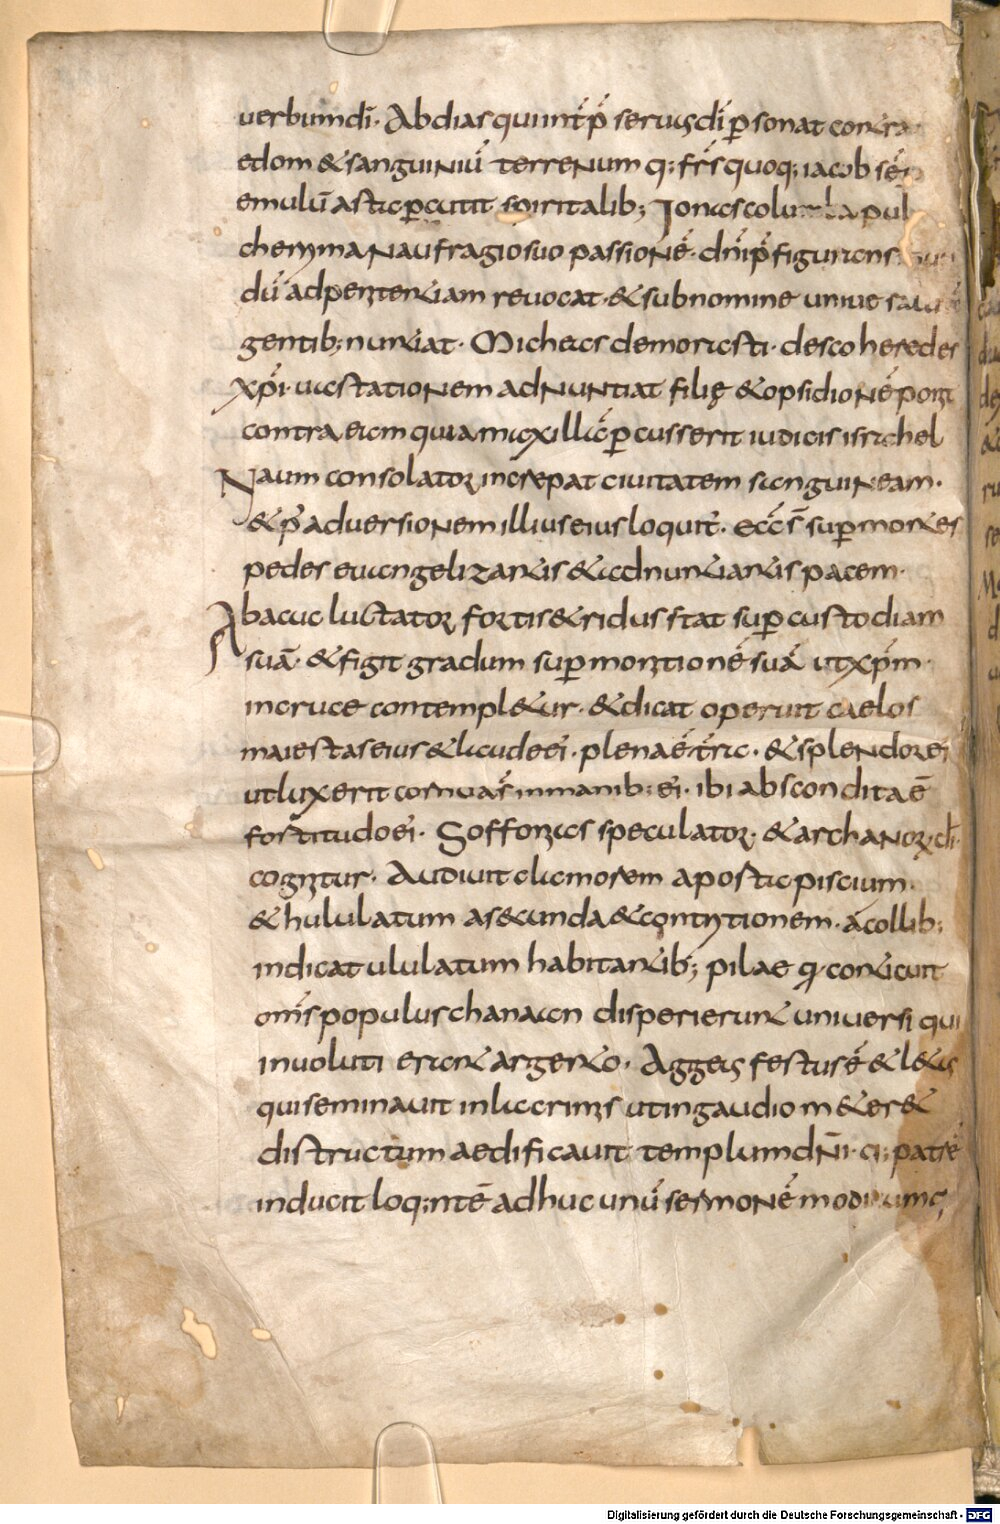 uerbum dī. Abdias qui int̄p̄ seruus dī p̄sonat contra
edom & sanguiniū terrenum q; fr̄is quoq; iacob
emulū asta p̄cutit spiritalib; Ionas columba pul
cherrima naufragio suo passionē. dn̄i p̄figurans
dū ad penitentiam reuocat. & sub nomine niniue
gentib; nuntiat. Micheas de morasti. descoheredes
xp̄i. uastationem adnuntiat filię & opsidionē ponit
contra eam quia maxillā p̄cusserit iudicis israhel
Naum consolator increpat ciuitatem sanguineam.
& p̄ aduersionem illius eius loquit̄. ecce s̄ sup montes
pedes euangelizantis & adnuntiantis pacem.
Abacuc luctator fortis & ridus stat sup custodiam
suā. & figit gradum sup monitionē suā ut xp̄m.
in cruce contempl&ur. & dicat operuit caelos
maiestas eius & laude ei. plena ē t̄ra. & splendor ei
ut lux erit cornua s̄ in manib; ei. ibi abscondita ē
fortitudo ei. Soffonias speculator. & archanor. dī
cognitur. Audiuit clamorem a posta piscium.
& hululatum a secunda & contrytionem. a collib;
indicat ululatum habitantib; pilae q. conticuit
om̄is populus chanaan disperierunt uniuersi qui
inuoluti erant argento. Aggeus festus ē & l&us
qui seminauit in lacrimis ut in gaudio m&er&
distructum aedificauit templum dn̄i. patrē
inducit loq;ntē adhuc unū sermonē
Digitalisierung gefördert durch die Deutsche Forschungsgemeinschaft - DFG